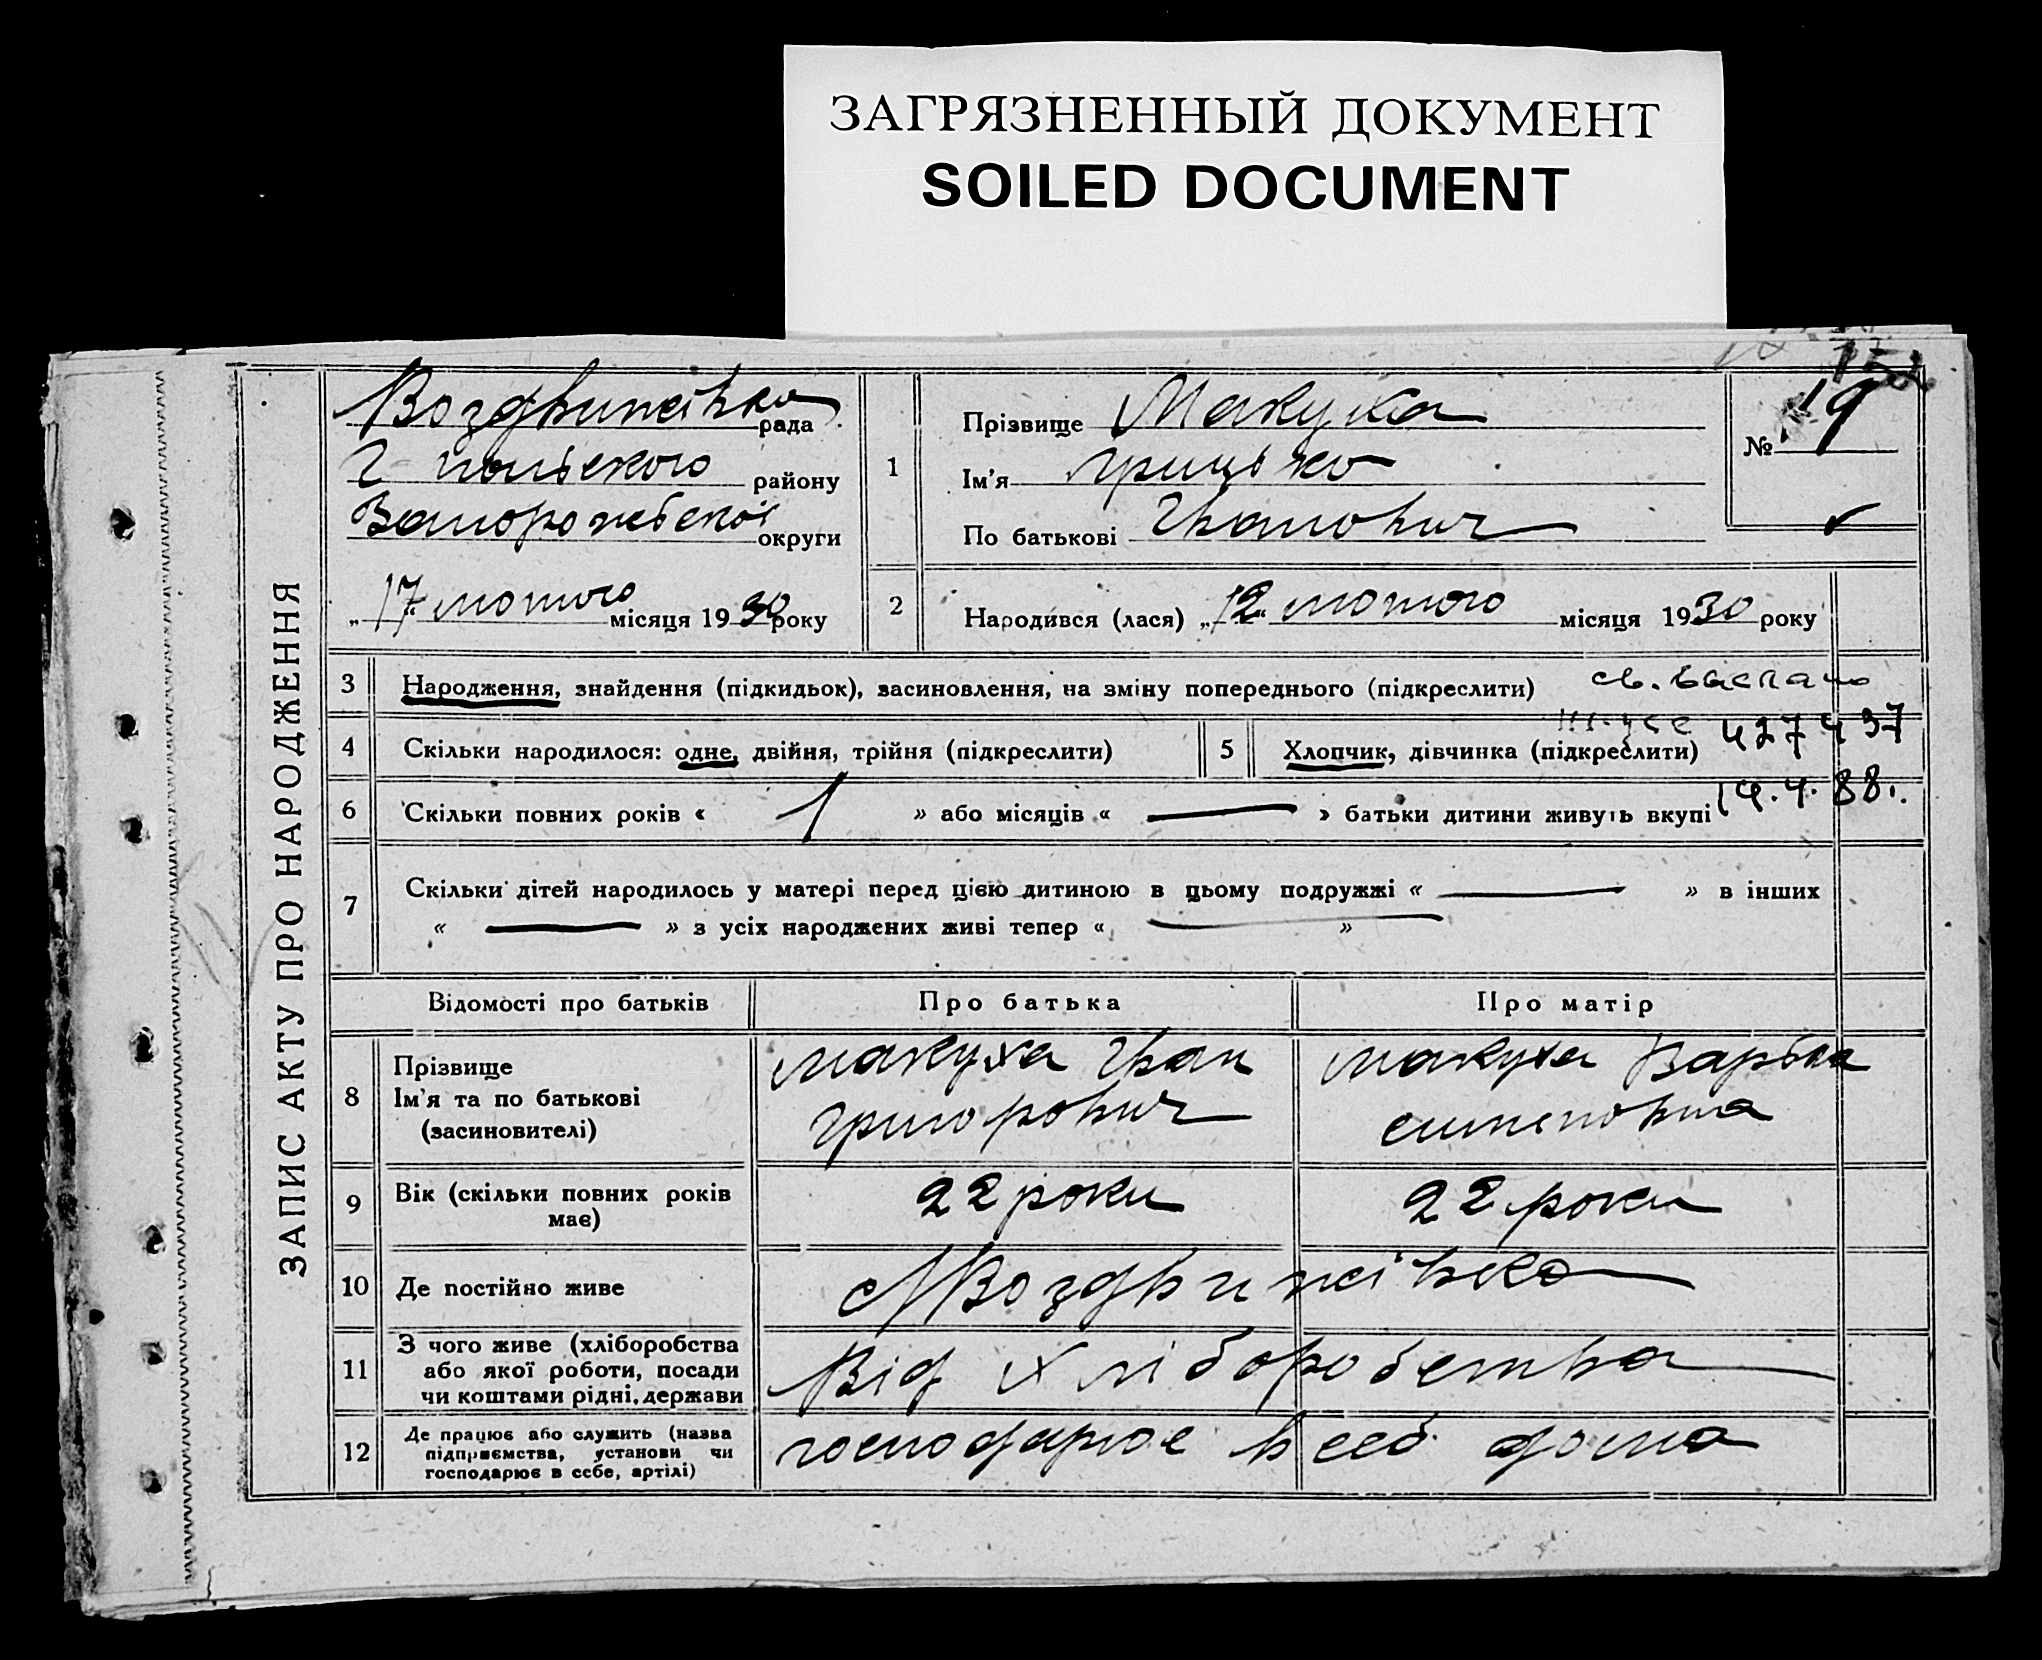 ЗАГРЯЗНЕННЫЙ ДОКУМЕНТ
SOILED DOCUMENT
ЗАПИС АКТУ ПРО НАРОДЖЕННЯ
Воздвижівка рада
Г-пільського району
Запорожської округи
„17“ лютого місяця 1930 року
1
Прізвище Макуха
Ім'я Грицько
По батькові Іванович
№ 19
2 Народився (лася) „12“ лютого місяця 1930 року
3 Народження, знайдення (підкидьок), засиновлення, на зміну попереднього (підкреслити)
св. выслано
4 Скільки народилося: одне, двійня, трійня (підкреслити)
5 Хлопчик, дівчинка (підкреслити)
427437
6 Скільки повних років « 1 » або місяців « — » батьки дитини живуть вкупі
14.4.88г.
7 Скільки дітей народилось у матері перед цією дитиною в цьому подружжі « — » в інших
« — » з усіх народжених живі тепер « — »
Відомості про батьків Про батька Про матір
8 Прізвище
Ім'я та по батькові
(засиновителі)
Макуха Іван
Григорович
Макуха Варька
9 Вік (скільки повних років
має)
22 роки 22 роки
10 Де постійно живе
с Воздвижівка
11 З чого живе (хліборобства
або якої роботи, посади
чи коштами рідні, держави
Від хліборобства
12 Де працює або служить (назва
підприємства, установи чи
господарює в себе, артілі)
господарює в себ дома